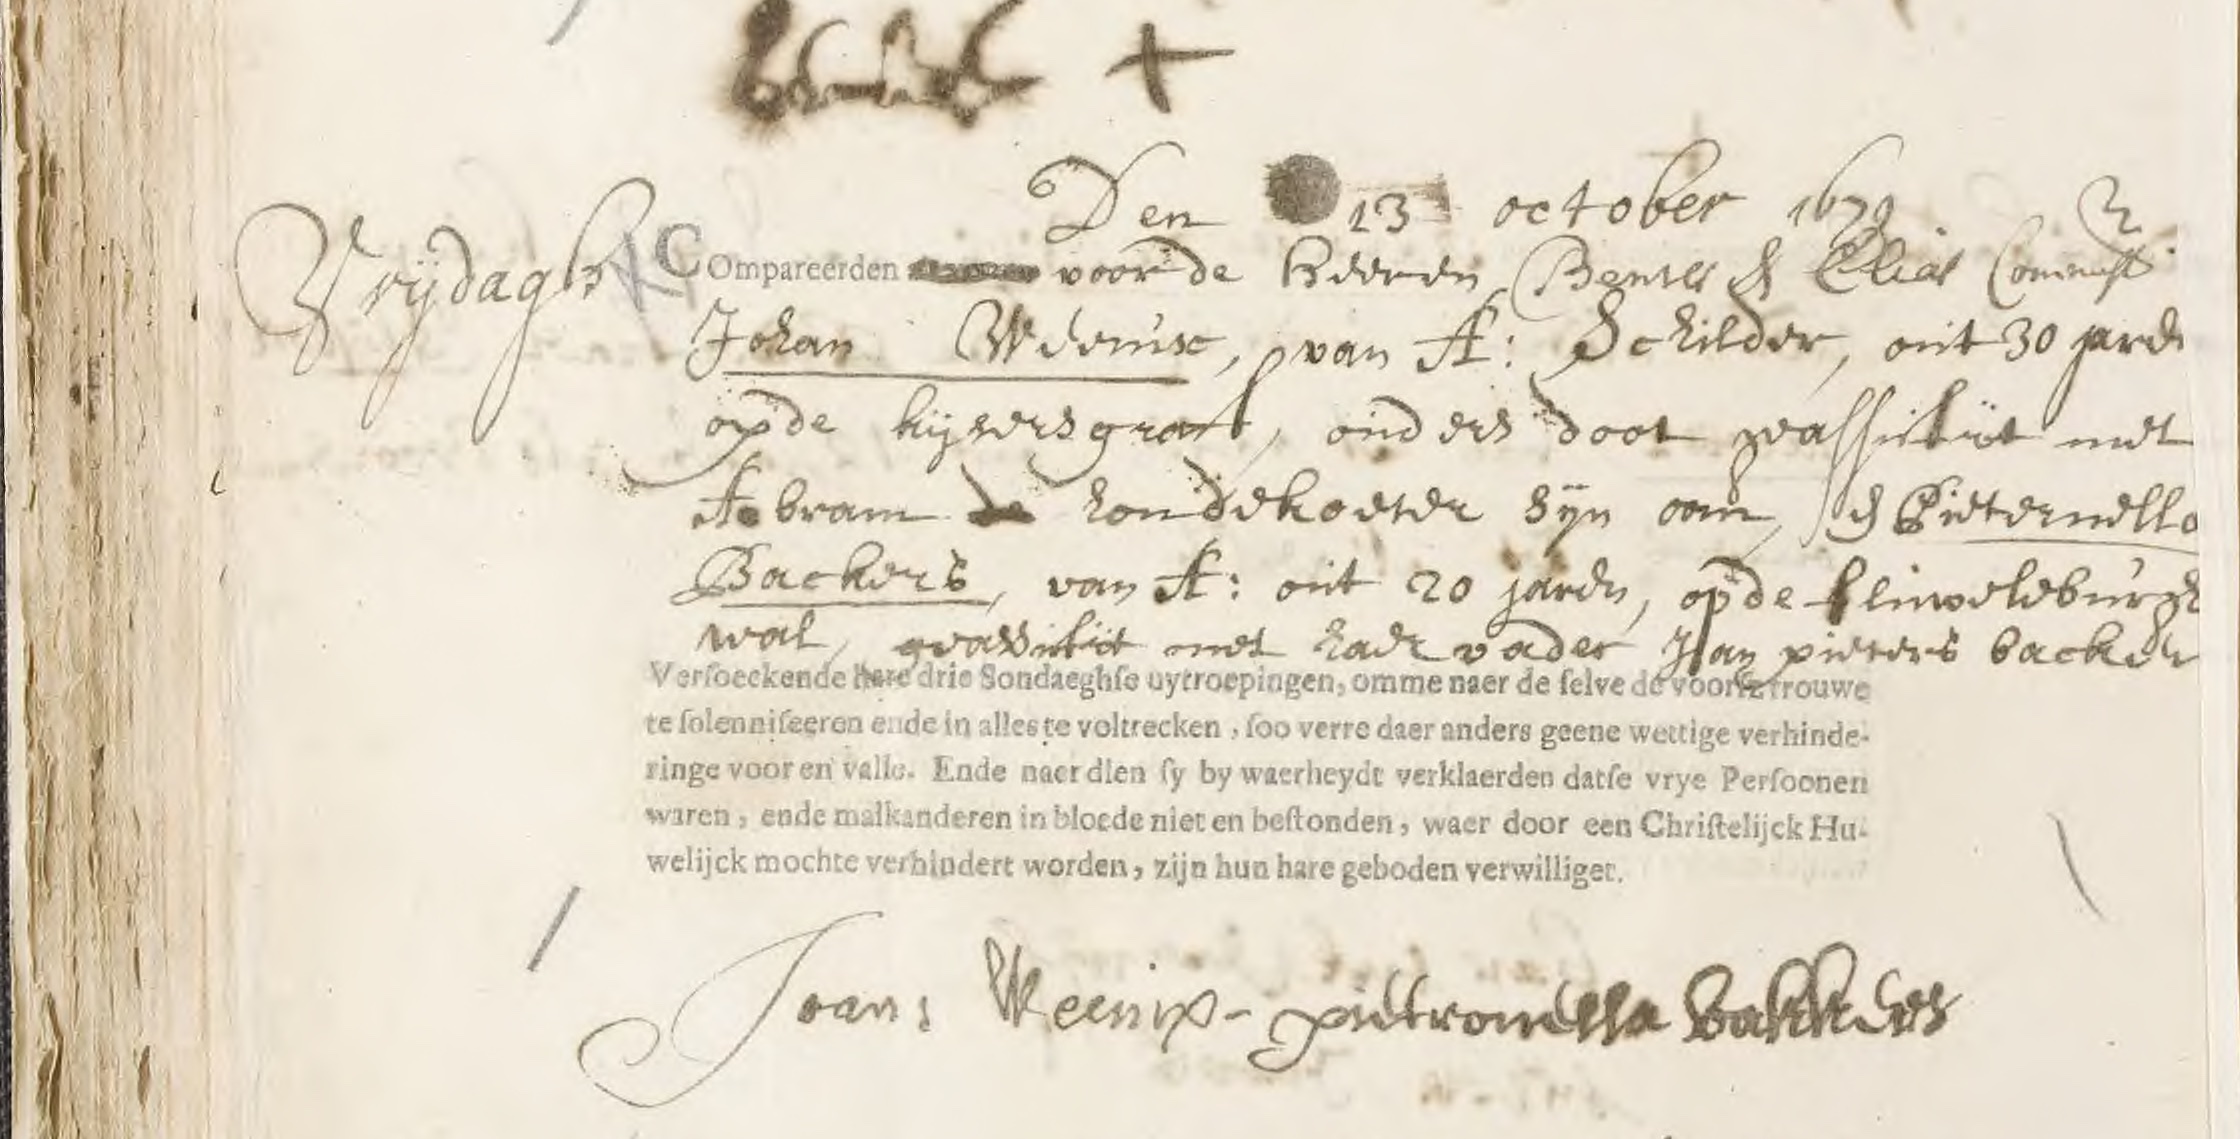 +
Den 13 october 1679
Vrijdaghs
Compareerden voor de Heeren & Elias Commiss
Johan Weenix, van A: Schilder, out 30 jaren
opde kijsersgraft, ouders doot geassisteert met
Abram de hondekoeter sijn oom, & Pieternella
Backers, van A: out 20 jaren, opde fluweleburgh
wal, geassisteert met haer vader Jan pieters backer
Versoeckende hare drie Sondaeghse uytroepingen, omme naer de selve de voorsz trouwe
te solenniseeren ende in alles te voltrecken, soo verre daer anders geene wettige verhinde-
ringe voor en valle. Ende naer dien sy by waerheydt verklaerden datse vrye Persoonen
waren, ende malkanderen in bloede niet en bestonden, waer door een Christelijck Hu-
welijck mochte verhindert worden, zijn hun hare geboden verwilliget.
Joan: Weenix - pietronella bakkers